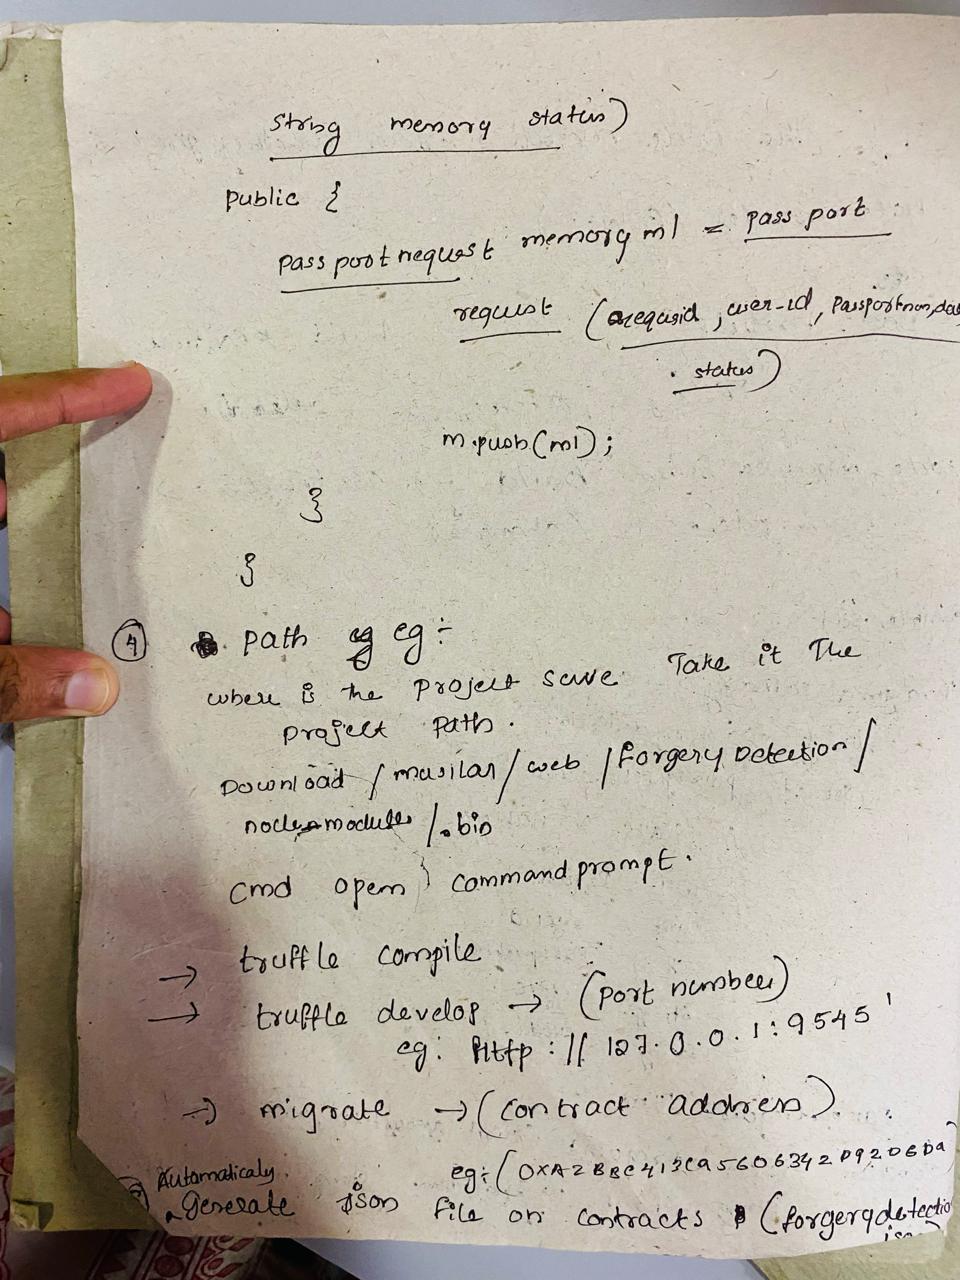 string memory status)
public {
passportrequest memory m1 = passport
request (requsid, user-id, Passportnum,
status)
m.push(m1);
}
}
4 Path eg:-
where is the Project save Take it The
project path.
Download / masilan / web / forgery Detection /
node-modules /.bin
cmd open } command prompt.
→ truffle compile
→ truffle develop → (port number)
eg: Http : // 127.0.0.1:9545
→ migrate → (contract address).
eg:- (0XA2BBC413CA560634209206Da
Automaticaly.
Generate json file on contracts (forgerydetectio